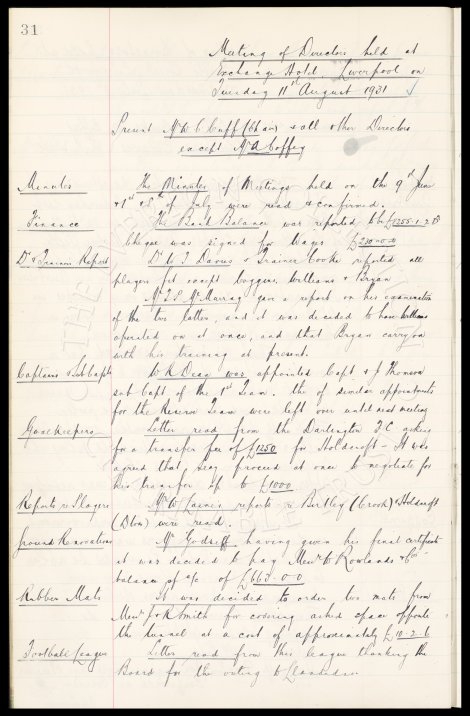 31
Meeting of Directors held at
Exchange Hotel Liverpool on
Tuesday 11th August 1931
Present Mr W C Cuff (Chair) & all other Directors
except Mr A Coffey
Minutes The Minutes of Meetings held on the 9th June
& 1st & of July were read & confirmed.
Finance The Bank Balance was reported to be
Cheque was signed for Wages £230-0-0
Dr & Trainers Report Dr Davies & Trainer Cooke reported all
players fit except Coggins, Williams & Bryan
Mr McMurray gave a report on his examination
of the two latter, and it was decided to have Williams
operated on at once, and that Bryan carry on
with his training at present.
Captains & Sub Capts W R Dean was appointed Capt & J Thomson
sub Capt of the 1st Team. the of similar appointments
for the Reserve Team were left over until next meeting
Goalkeepers Letter read from the Darlington F C asking
for a transfer fee of £1250 for Holdcroft - It was
agreed that Secy proceed at once to negotiate for
this transfer up to £1000
Reports re Players Mr W reports re Birtley (Crook) & Holdcroft
(Dton) were read.
Ground Renovations Mr Godseff having given his final certificate
it was decided to pay Messrs W Rowlands & Co
balance of a/c of £663-0-0
Rubber Mats It was decided to order two mats from
Messrs J & R Smith for covering asked space opposite
the tunnel at a cost of approximately £10-2-6
Football League Letter read from this league thanking the
Board for the voting to